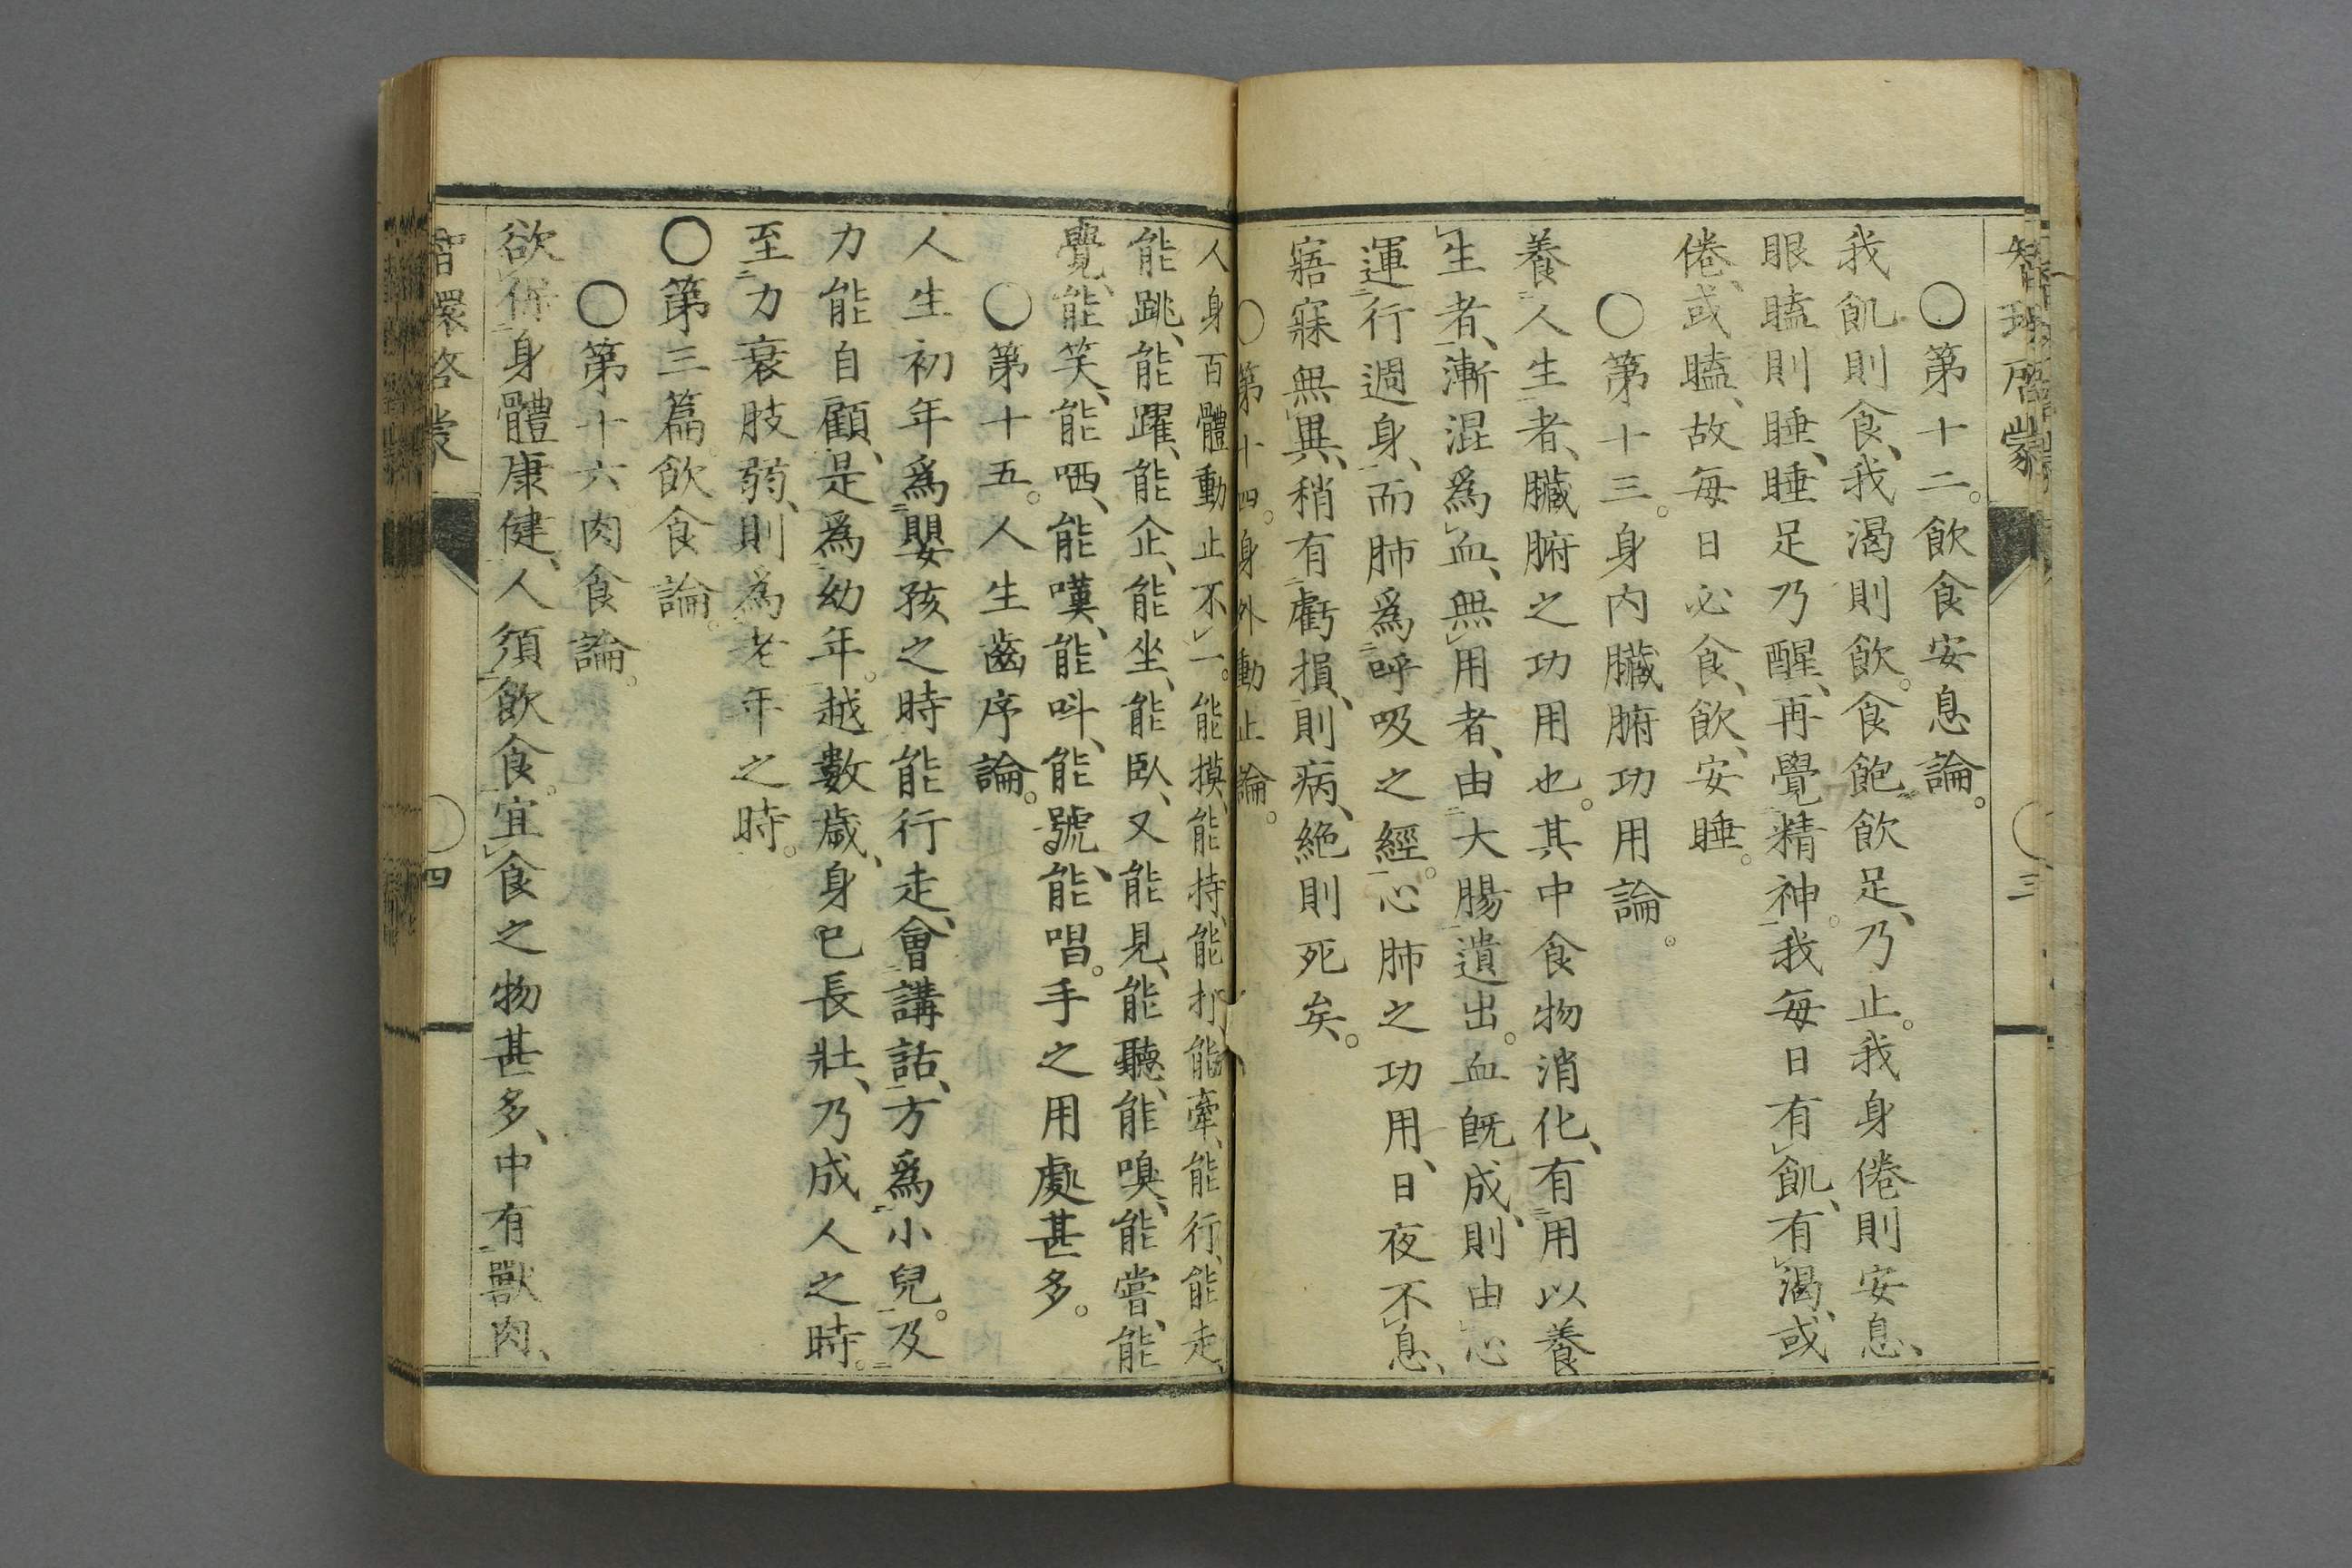 智環啓蒙
三
〇第十二。飲食安息論。
我飢則食、我渴則飲。食飽飲足、乃止。我身倦則安息、
眼瞌則睡、睡足乃醒、再覺精神。我每日有飢、有渴、或
倦、或瞌、故每日必食、飲、安睡。
〇第十三。身內臟腑功用論。
養人生者、臟腑之功用也。其中食物消化、有用以養
生者、漸混爲血、無用者、由大腸遺出。血旣成、則由心
運行週身、而肺爲呼吸之經。心肺之功用、日夜不息、
寤寐無異、稍有虧損、則病、絕則死矣。
〇第十四。身外動止論。
人身百體動止不一。能摸、能持、能打、能牽、能行、能走、
能跳、能躍、能企、能坐、能臥、又能見、能聽、能嗅、能嘗、能
覺、能笑、能哂、能嘆、能呌、能號、能唱。手之用處甚多。
〇第十五。人生齒序論。
人生初年爲嬰孩之時能行走、會講話、方爲小兒。及
力能自顧、是爲幼年。越數歲、身已長壯、乃成人之時。
至力衰肢弱、則為老年之時。
〇第三篇。飲食論。
〇第十六肉食論。
欲得身體康健、人須飲食。宜食之物甚多、中有獸肉、
智環啓蒙
四